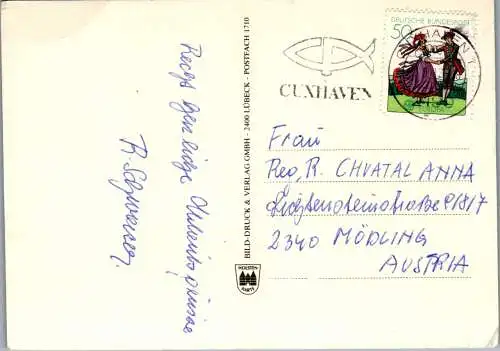 Recht herzliche Urlaubsgrüsse
R. Schwarzer
BILD-DRUCK & VERLAG GMBH - 2400 LÜBECK - POSTFACH 1710
HOLSTEN
KARTE
CUXHAVEN
DEUTSCHE BUNDESPOST
50
Frau
Reg. R. CHVATAL ANNA
Liechtensteinstraße
2340 MÖDLING
AUSTRIA